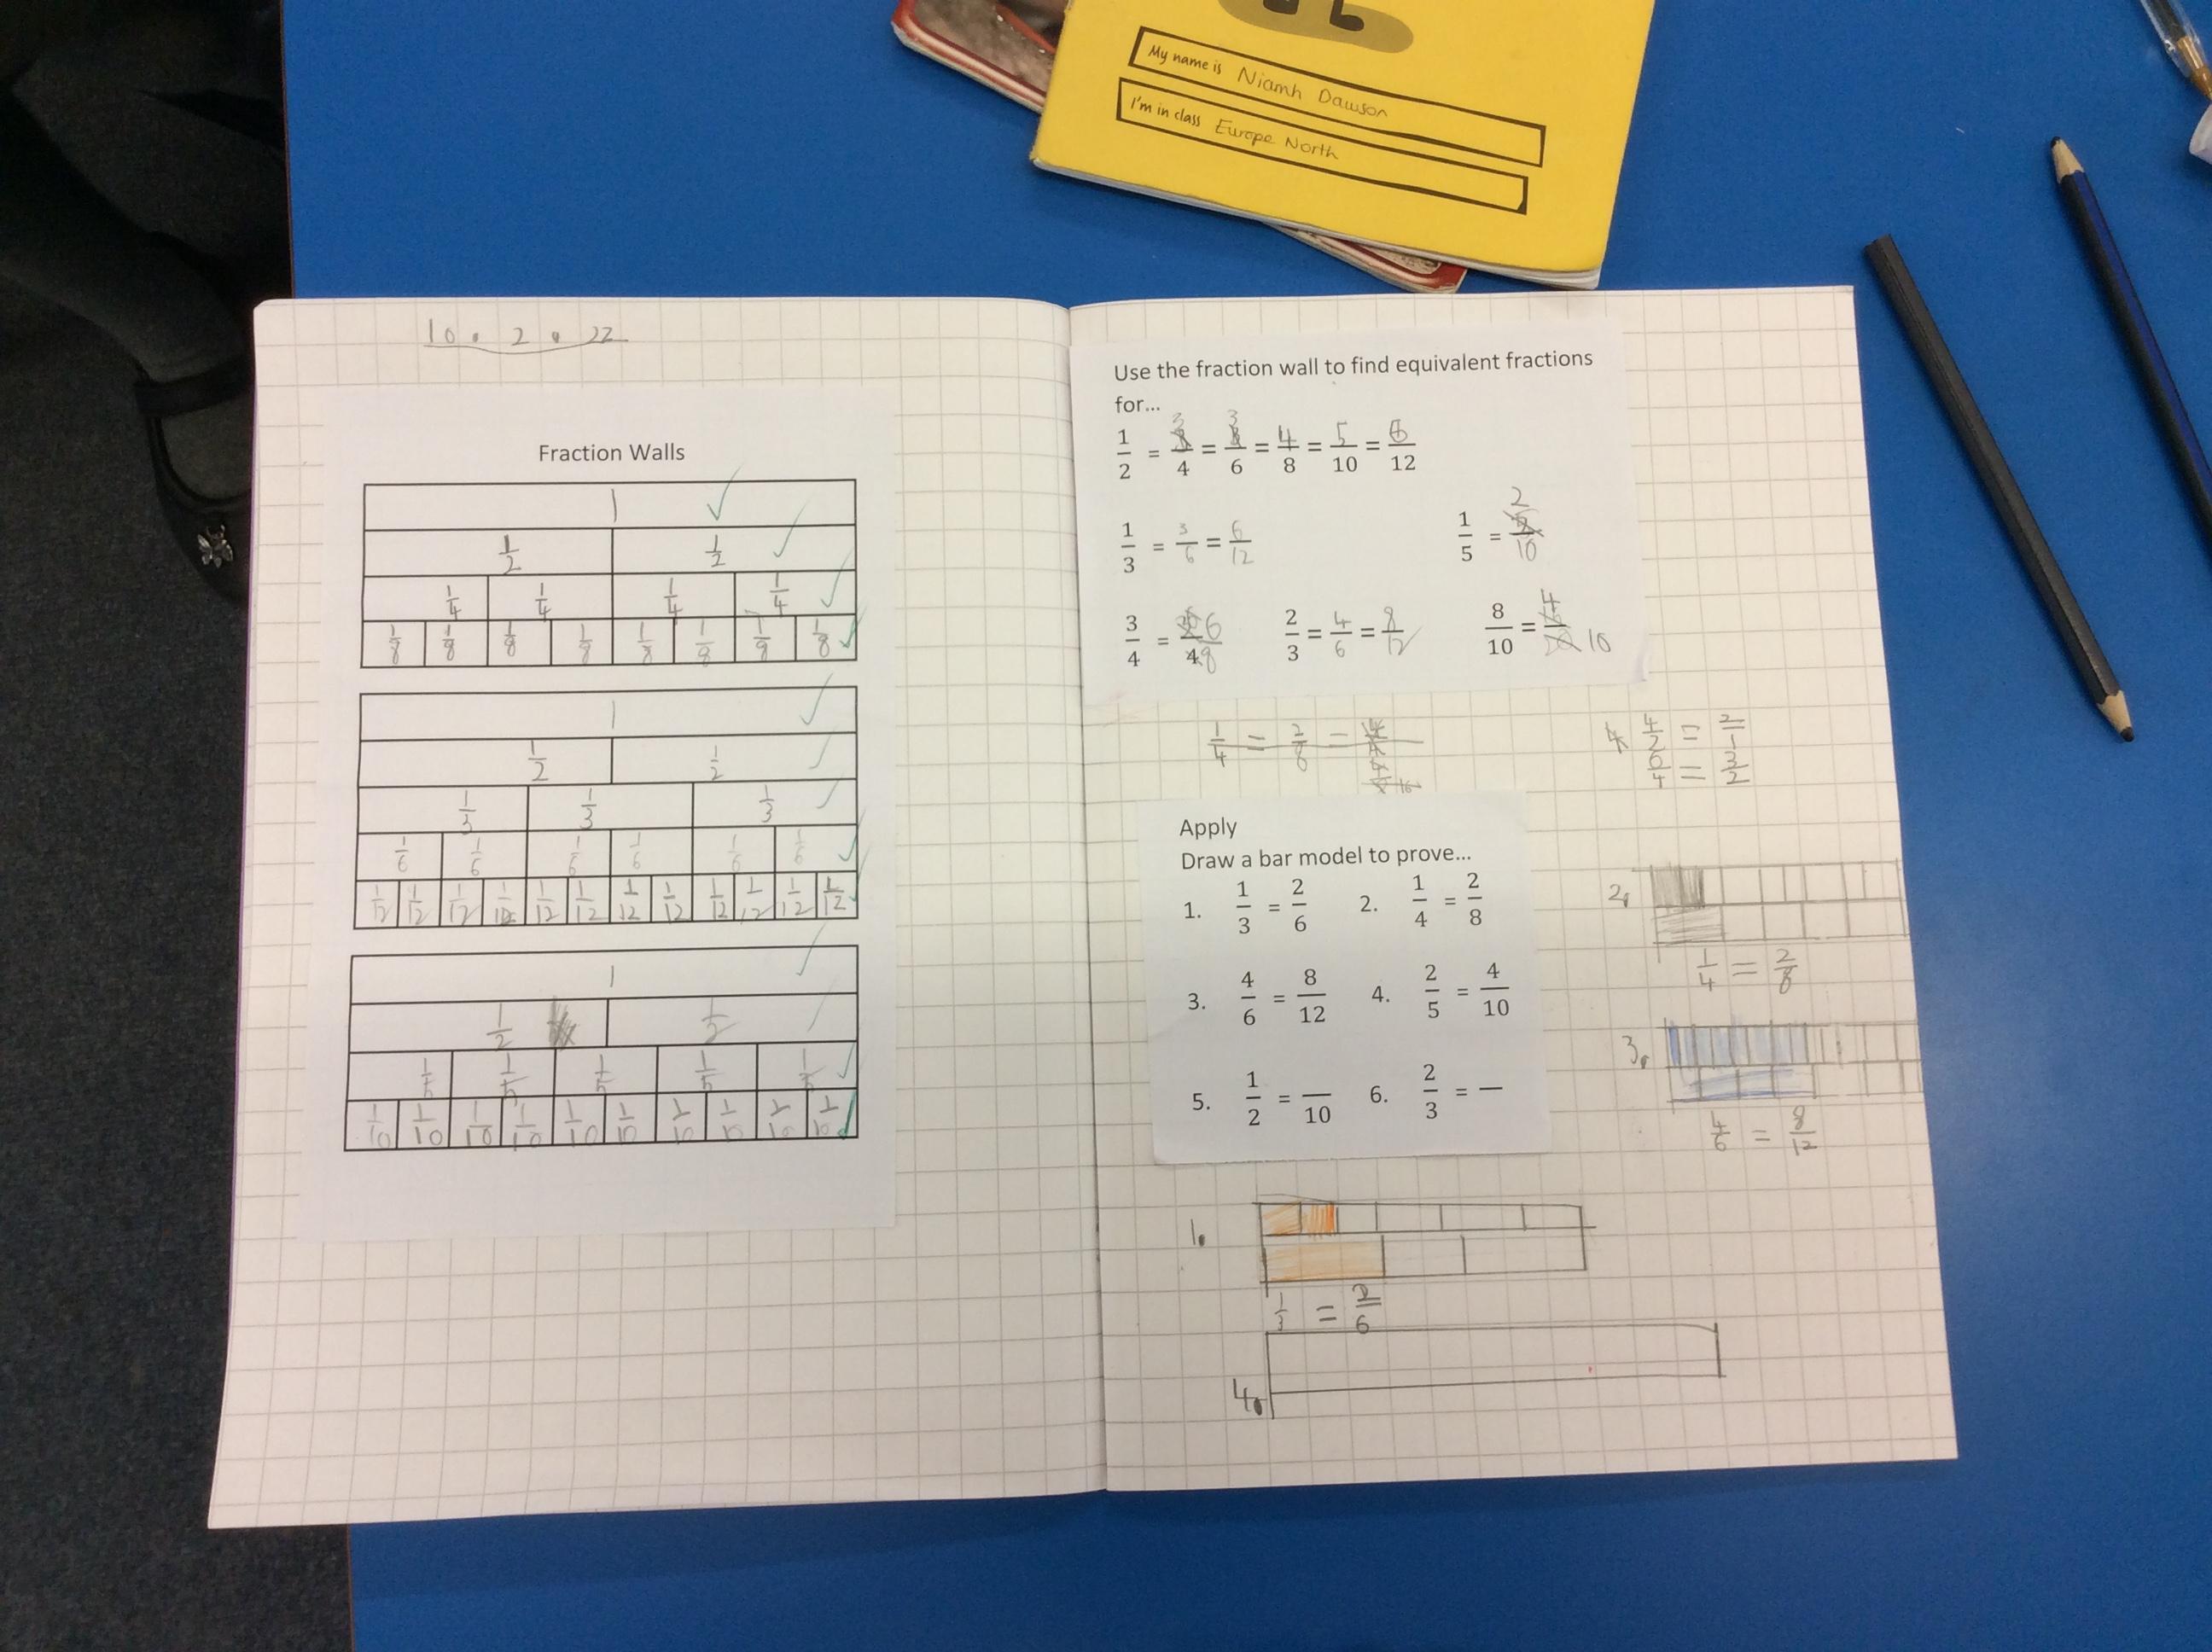 My name is Niamh Dawson
I'm in class Europe North
10 . 2 . 22
Fraction Walls
1
1/2 1/2
1/4 1/4 1/4 1/4
1/8 1/8 1/8 1/8 1/8 1/8 1/8 1/8
1
1/2 1/2
1/3 1/3 1/3
1/6 1/6 1/6 1/6 1/6 1/6
1/12 1/12 1/12 1/12 1/12 1/12 1/12 1/12 1/12 1/12 1/12 1/12
1
1/2 1/2
1/5 1/5 1/5 1/5 1/5
1/10 1/10 1/10 1/10 1/10 1/10 1/10 1/10 1/10 1/10
Use the fraction wall to find equivalent fractions
for...
1/2 = 3/4 = 3/6 = 4/8 = 5/10 = 6/12
1/3 = 3/6 = 6/12 1/5 = 2/10
3/4 = 6/8 2/3 = 4/6 = 8/12 8/10 = 4/10
1/4 = 2/8 =
4/2 = 2/1
6/4 = 3/2
Apply
Draw a bar model to prove...
1. 1/3 = 2/6 2. 1/4 = 2/8
3. 4/6 = 8/12 4. 2/5 = 4/10
5. 1/2 = /10 6. 2/3 =
2.
1/4 = 2/8
3.
4/6 = 8/12
1.
1/3 = 2/6
4.